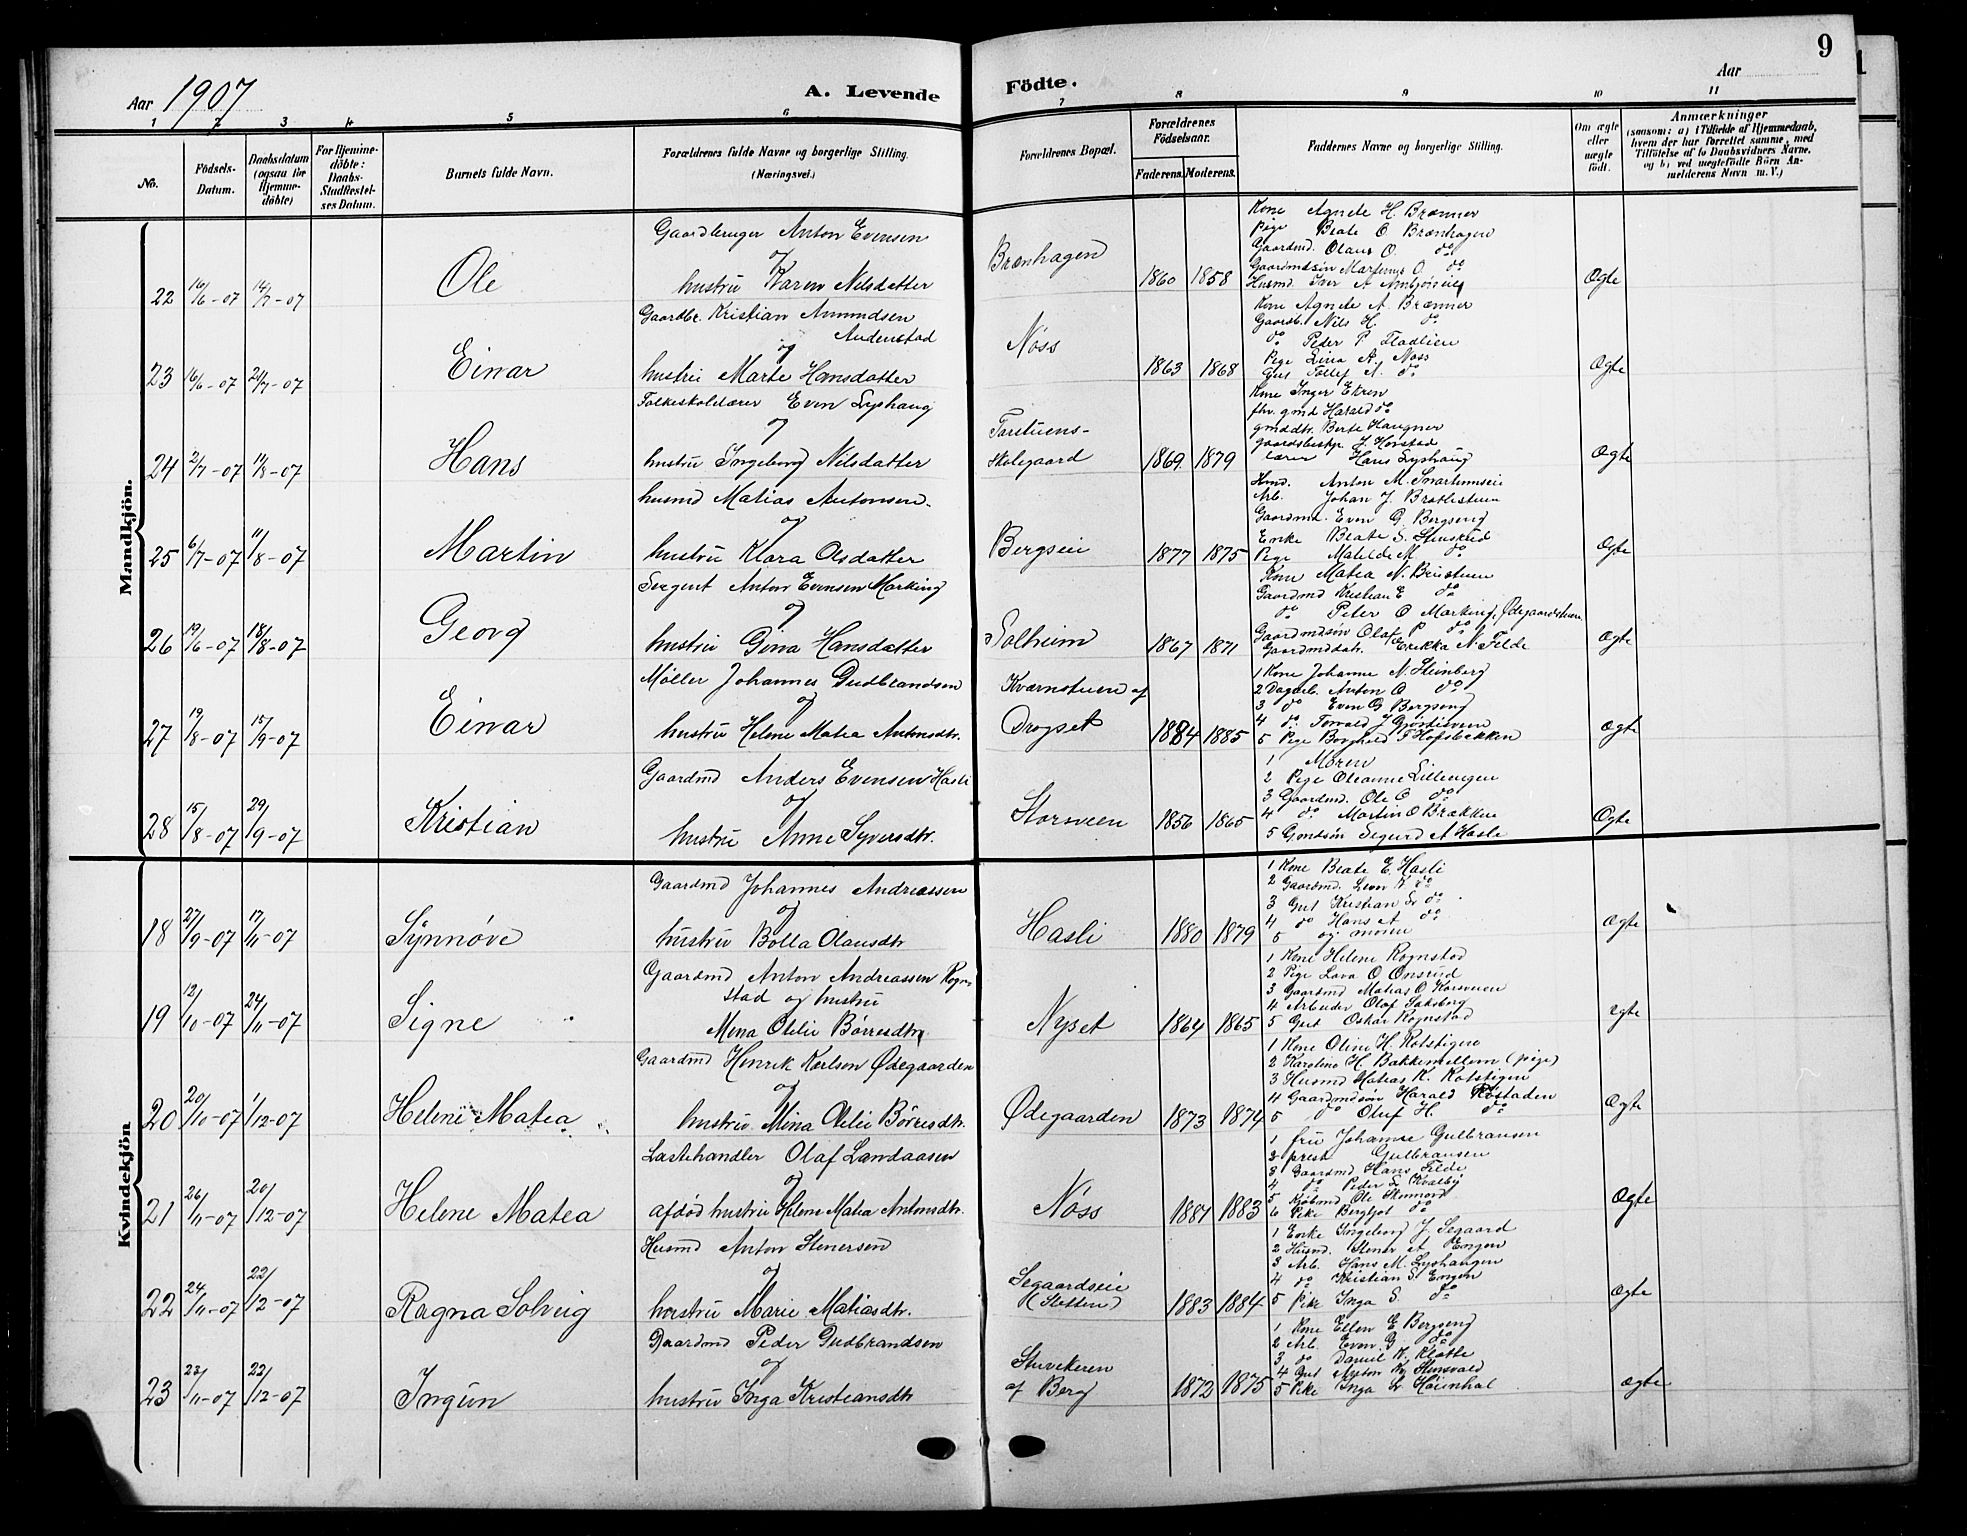 Aar 1907
A. Levende
Födte.
Aar
9
1 2 3 4 5 6 7 8 9 10 11
No.
Födsels-
Datum.
Daabsdatum
(ogsaa för
Hjemme-
döbte)
For Hjemme-
döbte:
Daabs-
Stadfæstel-
ses Datum.
Barnets fulde Navn.
Forældrenes fulde Navne og borgerlige Stilling.
(Næringsvei.)
Forældrenes Bopæl.
Forældrenes
Födselsaar.
Faderens. Moderens.
Faddernes Navne og borgerlige Stilling.
Om ægte
eller
uægte
födt.
Anmærkninger
(saasom: a) i Tilfælde af Hjemmedaab,
hvem der har forrettet samme, med
Tilföielse af to Daabsvidners Navne.
og b) ved uegtefödte Börn An-
melderens Navn m. V.)
Mandkjön.
22 16/6-07 14/7-07
Ole
Gaardbruger Anton Evensen
og
hustru Karen Nilsdatter
Brænhagen
1860 1858
Kone Agnete H. Brænner
Pige Beate O. Brænhagen
Gaardmd. Olaus O. do
Gaardmdsøn Martenus O. do
Husmd. Iver A.
Ægte
23 16/6-07 21/7-07
Einar
Gaardbr. Kristian Amundsen
Audenstad
og
hustru Marte Hansdatter
Nöss
1863 1868
Kone Agnete A. Brænner
Gaardb. Nils H. do
do Peder P. Fladlien
Pige Lina A. Nøss
Gut Tollef A. do
Ægte
24 2/7-07 11/8-07
Hans
Folkeskolelærer Even Lyshaug
og
hustru Ingeborg Nilsdatter
Torstuens-
Skolegaard
1869 1879
Kone Inger Ekren
fhv. gmd Harald do
gmddtr. Berte Haugner
gaardsbestyr J. Hovstad
lærer Hans Lyshaug
Ægte
25 6/7-07 11/8-07
Martin
husmd Matias Antonsen
og
hustru Klara Olsdatter
Bergseie
1877 1875
Hmd. Anton M. Svartumseie
Arb. Johan J. Bratlistuen
Gaardmd. Even G. Bergseng
Enke Beate S.
Pige Matilde M. do
Ægte
26 19/6-07 18/8-07
Georg
Sergent Anton Evensen Morking
og
hustru Gina Hansdatter
Solheim
1867 1871
Kone Matea N. Bristuen
Gaardmd Kristian E do
do Peter O Morking, Ødegaardstuen
Gaardmdsøn Olaf P do
Gaardmddatr. Erikka N Filde
Ægte
27 19/8-07 15/9-07
Einar
Møller Johannes Gudbrandsen
og
hustru Helene Matea Antonsdtr.
Kværnstuen af
Drogset
1884 1885
1 Kone Johanne N. Steinberg
2 Dagarb. Anton O do
3 do Even G Bergseng
4 do Torvald J
5 Pige Borghild F Hofsbakken
Ægte
28 15/8-07 29/9-07
Kristian
Gaardmd Anders Evensen Hasli
og
hustru Anne Syversdtr.
Storsveen
1856 1865
1 Moren
2 Pige Oleanne Lillengen
3 Gaardmd. Ole O do
4 do Martin O Brækken
5 Gmdsøn Sigurd A Hasle
Ægte
Kvindekjön
18 27/9-07 17/11-07
Synnøve
Gaardmd Johannes Andreassen
og
hustru Bolla Olausdtr
Hasli
1880 1879
1 Kone Beate E. Hasli
2 Gaardmd. Even K do
3 Gut Kristian do
4 do Hans A do
5 og moren
Ægte
19 12/10-07 24/11-07
Signe
Gaardmd Anton Andreassen Rogn-
stad og hustru
Mina Otilie Børresdtr
Nyset
1864 1865
1 Kone Helene Rognstad
2 Pige Lova O Onsrud
3 Gaardmd Matias O Korsveien
4 Arbeider Olaf Saksberg
5 Gut Oskar Rognstad
ægte
20 20/10-07 1/12-07
Helene Matea
Gaardmd Henrik Karlsen Ødegaarden
og
hustru Mina Otilie Børresdtr.
Ødegaarden
1873 1874
1 Kone Oline H. Rotstigen
2 Karoline H. Bakkemellem (pige)
3 Husmd Matias K. Rotstigen
4 Gaardmdsøn Harald Rostaden
5 do Oluf H. do
Ægte
21 26/11-07 20/12-07
Helene Matea
Lastehandler Olaf Landaasen
og
afdød hustru Helene Matea Antonsdtr.
Nöss
1881 1883
1 fru Johanne Gulbransen
2 prest Gulbransen
3 Gaardmd Hans Filde
4 do Peder S. Kvalby
5 Kjøbmd. Ole
6 Pike Bergljot do
Ægte
22 24/11-07 22/12-07
Ragna Solveig
Husmd Anton Stenersen
og
hustru Marie Matiasdtr.
Segaardseie
(Sletten)
1883 1884
1 Enke Ingeborg J. Segaard
2 Husmd. Stener A. Engen
3 Arb. Hans M. Lyshaugen
4 do Kristian S. Engen
5 Pike Inga S. do
Ægte
23 23/11-07 22/12-07
Ingun
Gaardmd Peder Gudbrandsen
og
hustru Inga Kristiansdtr
Stuvekeren
af Berg
1872 1875
1 Kone Ellen E Bergseng
2 Arb. Even G do
3 do Daniel K. Kløtte
4 Gut Anton K.
5 Pike Inga
Ægte